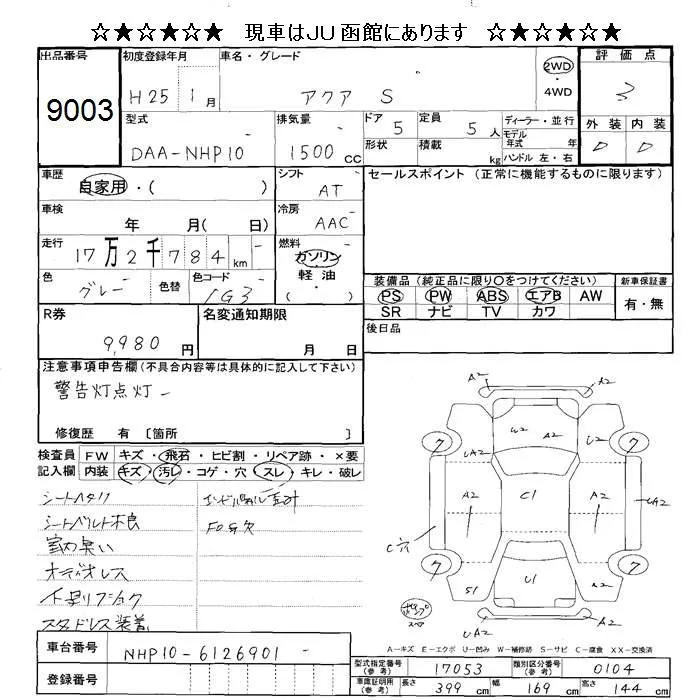 ☆★☆★☆★ 現車はJU函館にあります ☆★☆★☆★
出品番号 9003
初度登録年月 H25 1月
車名・グレード アクア S
2WD ・4WD
評価点 3
外装 D 内装 D
型式 DAA-NHP10
排気量 1500CC
ドア 5
形状
定員 5人
積載 kg
ディーラー・並行
モデル年式 年
ハンドル 左・右
車歴 自家用・( )
シフト AT
セールスポイント(正常に機能するものに限ります)
車検 年 月( 日)
冷房 AAC
走行 17万2千784km
燃料 ガソリン 軽油 ( )
色 グレー
色替
色コード 1G3
装備品(純正品に限り○をつけてください)
PS PW ABS エアB AW
SR ナビ TV カワ
新車保証書 有・無
R券 9,980円
名変通知期限 月 日
後日品
注意事項申告欄(不具合内容等は具体的に記入して下さい)
警告灯点灯
修復歴 有 〔箇所 〕
検査員記入欄
FW キズ・飛石・ヒビ割・リペア跡・×要
内装 キズ・汚レ・コゲ・穴・スレ・キレ・破レ
シートヘタリ
シートベルト不良
室内臭い
オーディオレス
スタッドレス装着
A2 A2
7 7
U2 A2 U2
UA2
A2 C1 A2 UA2
C穴
7 7
S1 U1 A2
UA2 A2
A-キズ E-エクボ U-凹み W-補修跡 S-サビ C-腐食 XX-交換済
車台番号 NHP10-6126901
登録番号
型式指定番号(参考) 17053
類別区分番号(参考) 0104
車庫証明用(参考) 長さ 399cm 幅 169cm 高さ 144cm